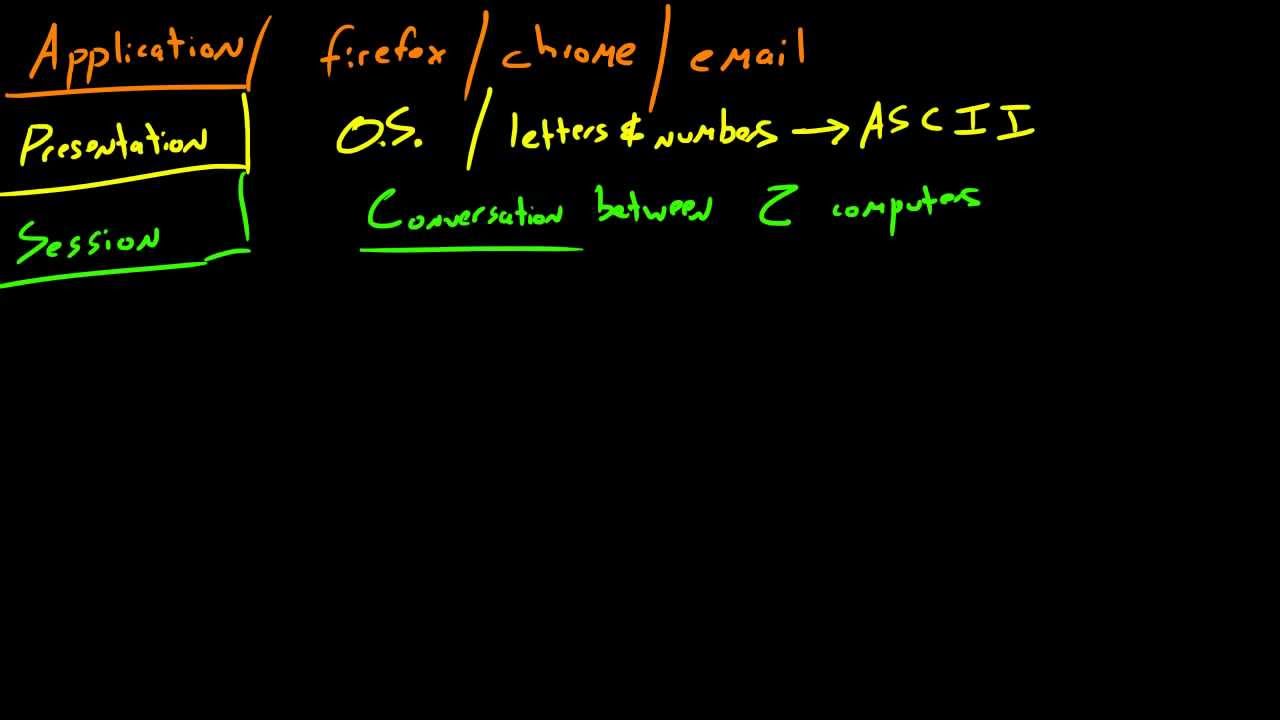 Application / firefox / chrome / email
Presentation O.S. / letters & numbers → ASCII
Session Conversation between 2 computers